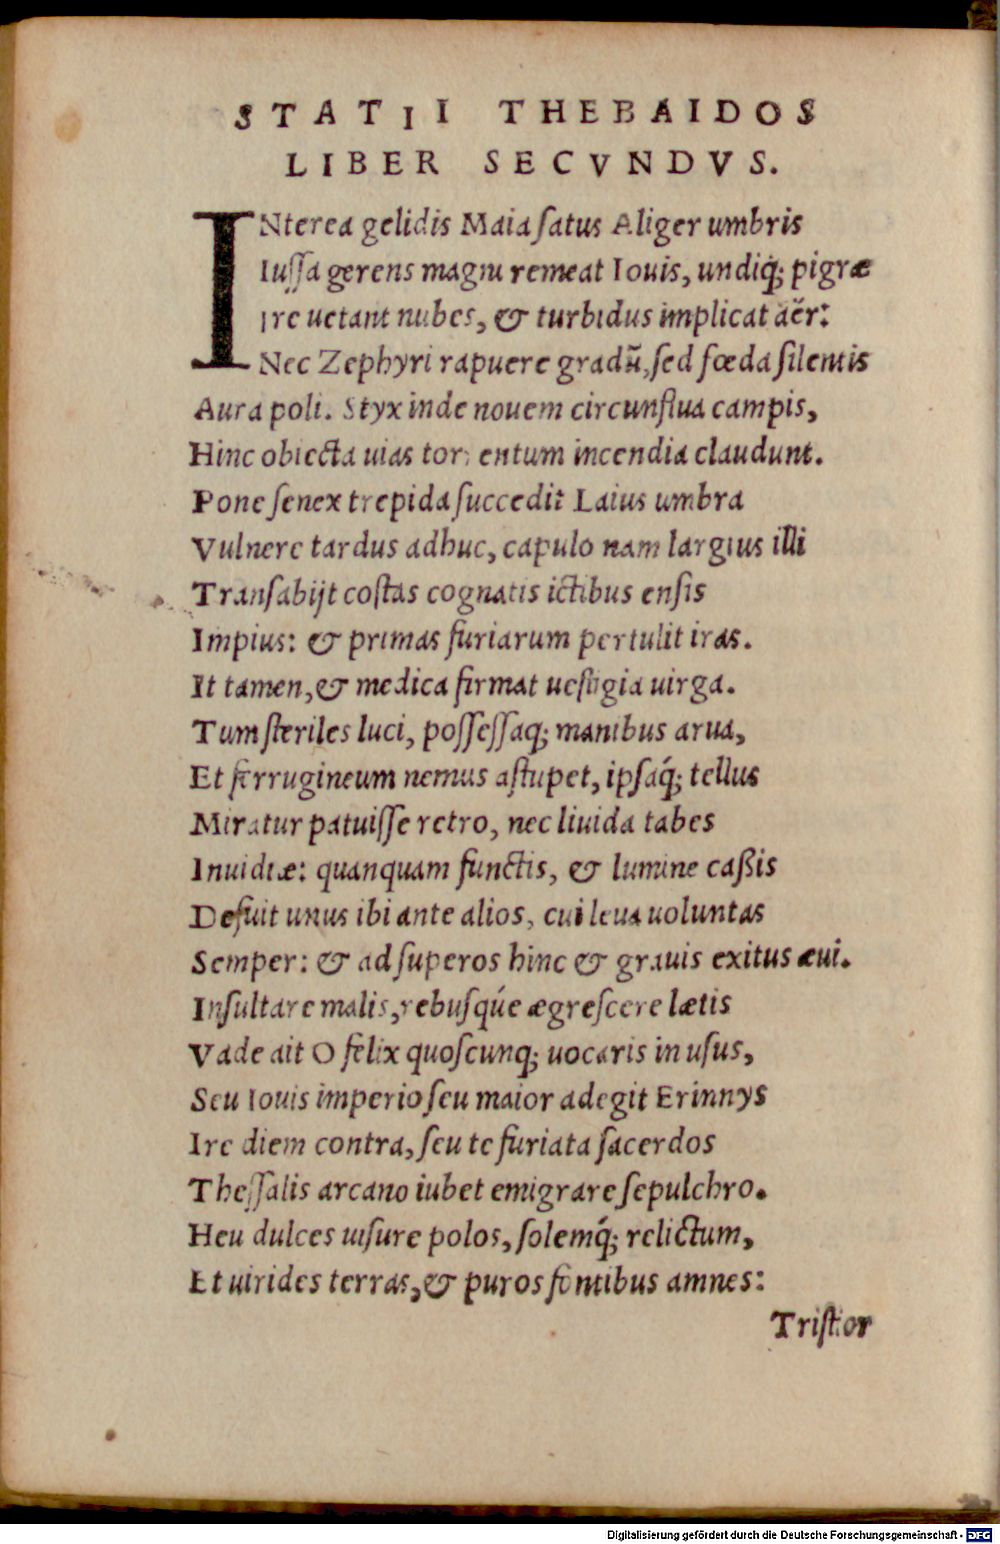 STATII THEBAIDOS
LIBER SECVNDVS.
INterea gelidis Maia ſatus Aliger umbris
Iuſſa gerens magni remeat Iouis, undiq; pigræ
Ire uetant nubes, & turbidus implicat aër:
Nec Zephyri rapuere gradū, ſed fœda ſilentis
Aura poli. Styx inde nouem circunflua campis,
Hinc obiecta uias torrentum incendia claudunt.
Pone ſenex trepida ſuccedit Laius umbra
Vulnere tardus adhuc, capulo nam largius illi
Tranſabijt coſtas cognatis ictibus enſis
Impius: & primas furiarum pertulit iras.
It tamen, & medica firmat ueſtigia uirga.
Tum ſteriles luci, poſſeſſaq; manibus arua,
Et ferrugineum nemus aſtupet, ipſaq́; tellus
Miratur patuiſſe retro, nec liuida tabes
Inuidiæ: quanquam functis, & lumine caßis
Defuit unus ibi ante alios, cui leua uoluntas
Semper: & ad ſuperos hinc & grauis exitus æui.
Inſultare malis, rebuſqúe ægreſcere lætis
Vade ait O felix quoſcunq; uocaris in uſus,
Seu Iouis imperio ſeu maior adegit Erinnys
Ire diem contra, ſeu te furiata ſacerdos
Theſſalis arcano iubet emigrare ſepulchro.
Heu dulces uiſure polos, ſolemq́; relictum,
Et uirides terras, & puros fontibus amnes:
Triſtior
Digitalisierung gefördert durch die Deutsche Forschungsgemeinschaft - DFG